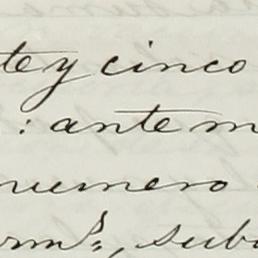 te y cinco
: ante m
numero
orm.s, sub